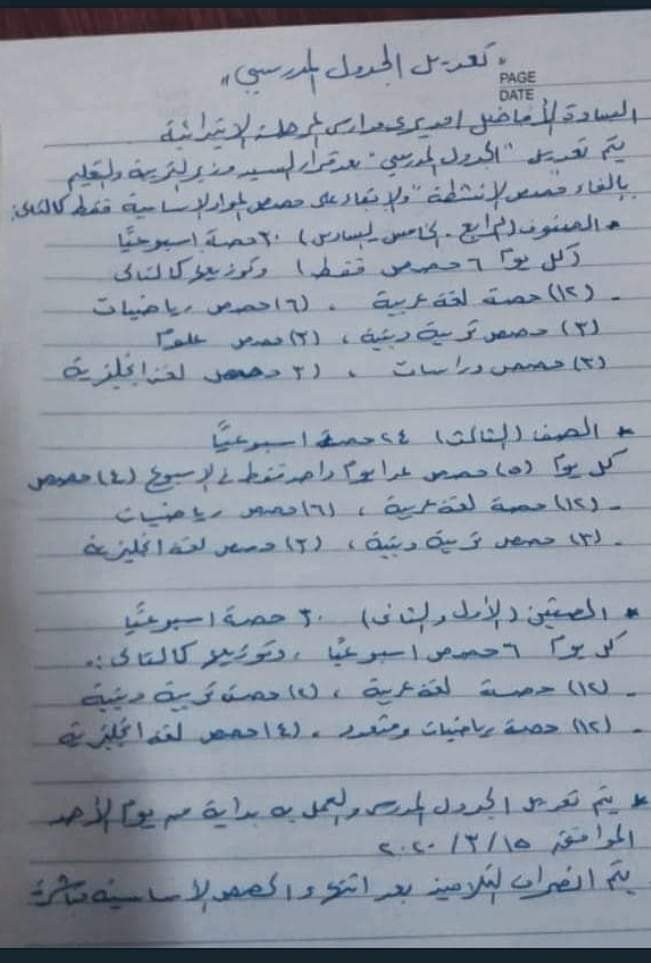 "تعديل الجدول المدرسي"
PAGE
DATE
السادة الأفاضل / مديرى مدارس المرحلة الابتدائية
يتم تعديل "الجدول المدرسي" بعد قرار السيد وزير التربية والتعليم
بإلغاء حصص الأنشطة "والإبقاء على حصص المواد الأساسية فقط كالتالى:
* الصفوف (الرابع - الخامس - السادس) ٣٠ حصة اسبوعيًا
(كل يوم ٦ حصص فقط) وتوزيعه كالتالى
- (١٢) حصة لغة عربية ، (٦) حصص رياضيات
(٣) حصص تربية دينية ، (٣) حصص علوم
(٣) حصص دراسات ، (٣) حصص لغة انجليزية
* الصف (الثالث) ٢٤ حصة اسبوعيًا
كل يوم (٥) حصص عدا يوم واحد فقط فى الاسبوع (٤) حصص
- (١٢) حصة لغة عربية ، (٦) حصص رياضيات
- (٣) حصص تربية دينية ، (٣) حصص لغة انجليزية
* الصفين (الأول والثانى) ٣٠ حصة اسبوعيًا
كل يوم ٦ حصص اسبوعيًا ، وتوزيعه كالتالى :.
- (١٢) حصة لغة عربية ، (٢) حصة تربية دينية
- (١٢) حصة رياضيات ومتعدد ، (٤) حصص لغة انجليزية
* يتم تعديل الجدول المدرسى والعمل به بداية من يوم الأحد
الموافق ١٥ / ٣ / ٢٠٢٠
يتم انصراف التلاميذ بعد انتهاء الحصص الأساسية مباشرة